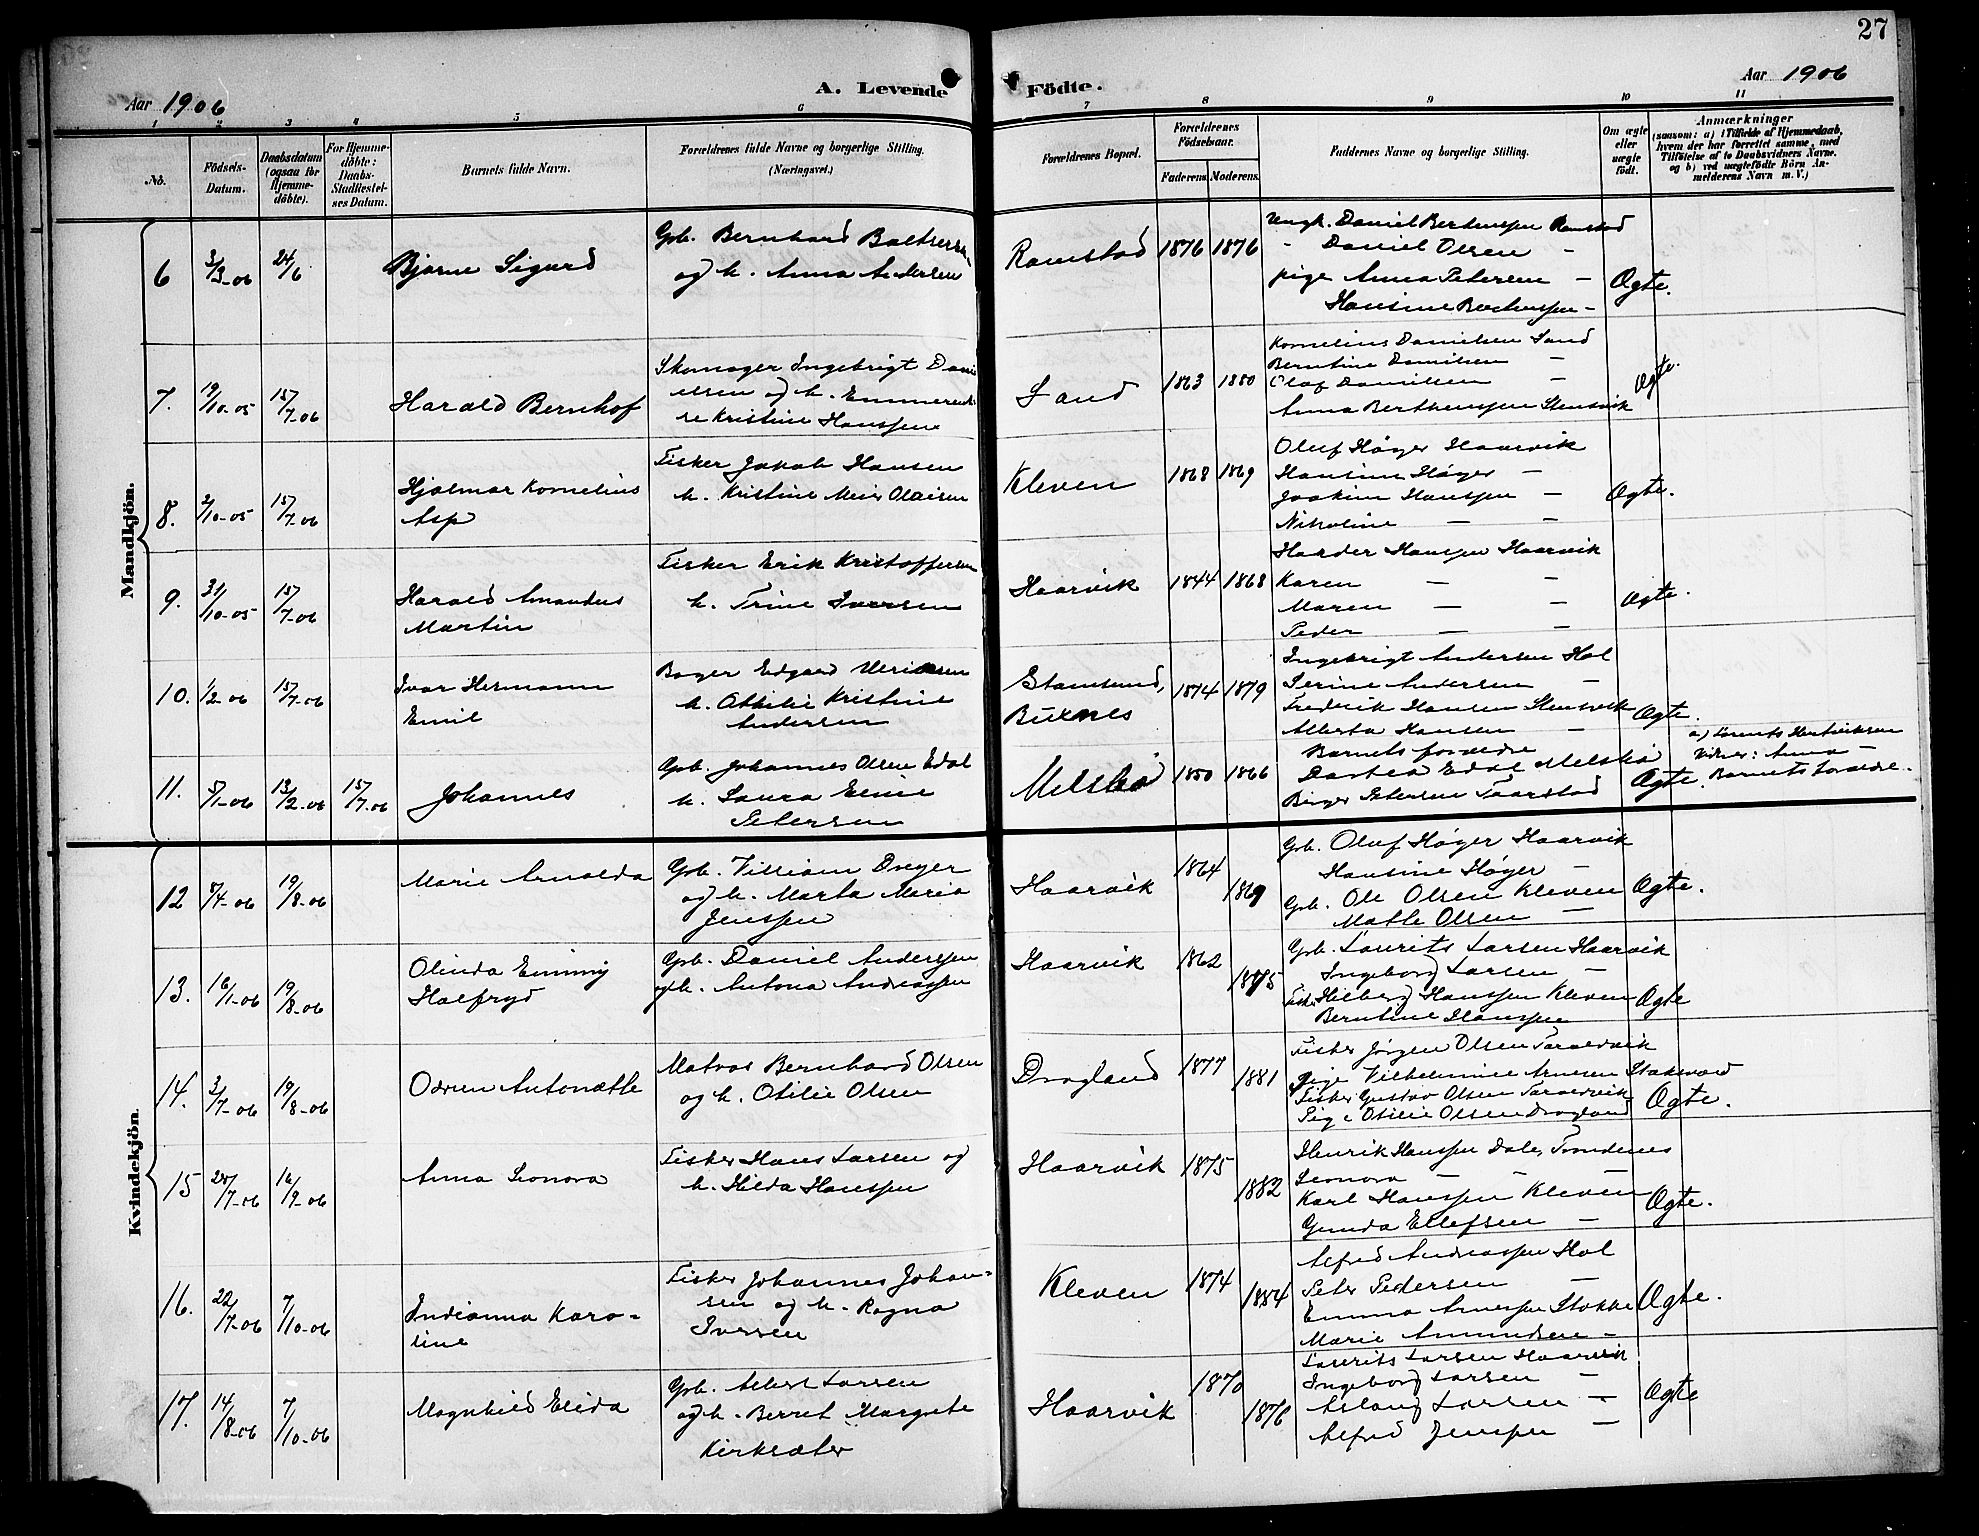 27
Aar 1906
A. Levende Födte.
Aar 1906
1 2 3 4 5 6 7 8 9 10 11
No.
Födsels-Datum.
Daabsdatum (ogsaa for Hjemme-döbte).
For Hjemme-döbte: Daabs-Stadfæstel-ses Datum.
Barnets fulde Navn.
Forældrenes fulde Navne og borgerlige Stilling. (Næringsvei.)
Forældrenes Bopæl.
Forældrenes Födselsaar.
Faderens. Moderens.
Faddernes Navne og borgerlige Stilling.
Om ægte eller uægte födt.
Anmærkninger
(saasom: a) i Tilfælde af Hjemmedaab, hvem der har forrettet samme, med Tilföielse af to Daabsvidners Navne. og b) ved uægtefödte Börn An-melderens Navn m. V.)
Mandkjön.
6 3/3-06 24/6 Bjarne Sigurd
Gpb. Bernhard Baltsersen
og h. Anna Andersen
Ramstad 1876 1876
Ungk. Daniel Berthenssen Ramstad
- Daniel Olsen -
pige Anna Petersen -
Hansine Berthenssen -
Ægte.
7. 19/10-05 15/7-06 Harald Bernhof
Skomager Ingebrigt Dani
elsen og h. Emmerenti
se Kristine Hanssen
Sand 1863 1880
Kornelius Danielsen Sand
Berntine Danielsen -
Olaf Danielsen -
Anna Berthenssen Stensvik
Ægte.
8. 2/10-05 15/7-06 Hjalmar Kornelius
Asp
Fisker Jakob Hansen
h. Kristine Olaisen
Kleven 1868 1869
Oluf Høger Haarvik
Hansine Høger -
Joakim Hanssen -
Nikoline - -
Ægte.
9. 31/10-05 15/7-06 Harald Amandus
Martin
Fisker Erik Kristoffersen
h. Trine Iversen
Haarvik 1844 1868
Halder Hanssen Haarvik
Karen - -
Maren - -
Peder - -
Ægte.
10. 1/2-06 15/7-06 Ivar Hermann
Emil
Bager Edgard Ulriksen
h. Othilie Kristine
Andersen
Stamsund,
Buxnes 1874 1879
Ingebrigt Andersen Hol
Serine Andersen -
Fredrik Hansen Stensvik
Alberta Hansen -
Ægte.
11. 5/1-06 13/2-06 15/7-06 Johannes
Gpb. Johannes Olsen Edal
h. Laura Elnie
Petersen
Melsbø 1850 1866
Barnets forældre
Dorthea Edal Melsbø
Birger Petersen Taarstad
Ægte.
a) Lorents Hentriksen
Vidner: Anna -
Barnets Forældre.
Kvindekjön.
12 8/4-06 19/8-06 Marie Arnolda
Gpb. Villiam Dreyer
og h. Marta Maria
Jenssen
Haarvik 1864 1869
Gpb. Oluf Høger Haarvik
Hansine Høger -
Gpb. Ole Olsen Kleven
Mathe Olsen -
Ægte.
13. 16/1-06 19/8-06 Olinda Emmy
Halfryd
Gpb. Daniel Anderssen
og h. Antona Andreassen
Haarvik 1862 1875
Gpb. Laurits Larsen Haarvik
Ingeborg Larsen -
Fisk. Hilberg Hanssen Kleven
Berntine Hanssen
Ægte
14. 3/7-06 19/8-06 Odrun Antonætte
Matros Bernhard Olsen
og h. Otilie Olsen
Drogland 1877 1881
Fisker Jørgen Olsen Taraldvik
Pige Vilhelmine Arnesen Stokmard
Fisker Gustav Olsen Taraldvik
Pige Otilie Olsen Drogland
Ægte.
15 20/7-06 16/9-06 Anna Leonora
Fisker Hans Larsen og
h. Hilda Hanssen
Haarvik 1875 1882
Henrik Hanssen Dale, Trondenes
Leonora - - -
Karl Hanssen Kleven
Gunda Ellefsen -
Ægte.
16. 22/7-06 7/10-06 Indianna Karo-
line
Fisker Johannes Johan-
sen og h. Ragna
Iversen
Kleven 1874 1884
Alfred Andreassen Hol
Peter Pedersen -
Emma Arnessen Stokke
Marie Amundsen -
Ægte.
17. 14/8-06 7/10-06 Magnhild Elida
Gpb. Albert Larsen
og h. Berret Margrete
Kirksæter
Haarvik 1870 1876
Laurits Larsen Haarvik
Ingeborg Larsen -
Aslaug Larsen -
Alfred Jenssen -
Ægte